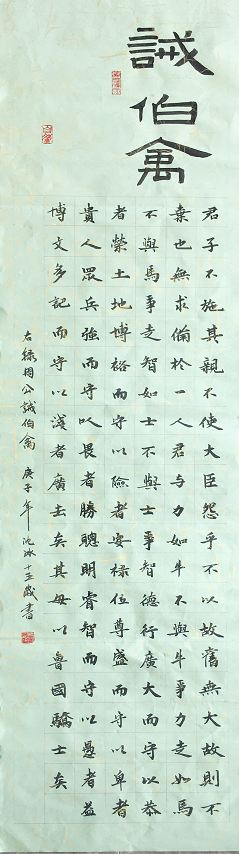 誡伯禽
君子不施其親不使大臣怨乎不以故舊無大故則不
棄也無求備於一人君与力如牛不與牛爭力走如馬
不與馬爭走智如士不與士爭智德行廣大而守以恭
者榮土地博裕而守以險者安祿位尊盛而守以卑者
貴人眾兵強而守以畏者勝聰明睿智而守以愚者益
博文多記而守以淺者廣去矣其毋以魯國驕士矣
右錄周公誡伯禽 庚子年 沈冰十五歲書